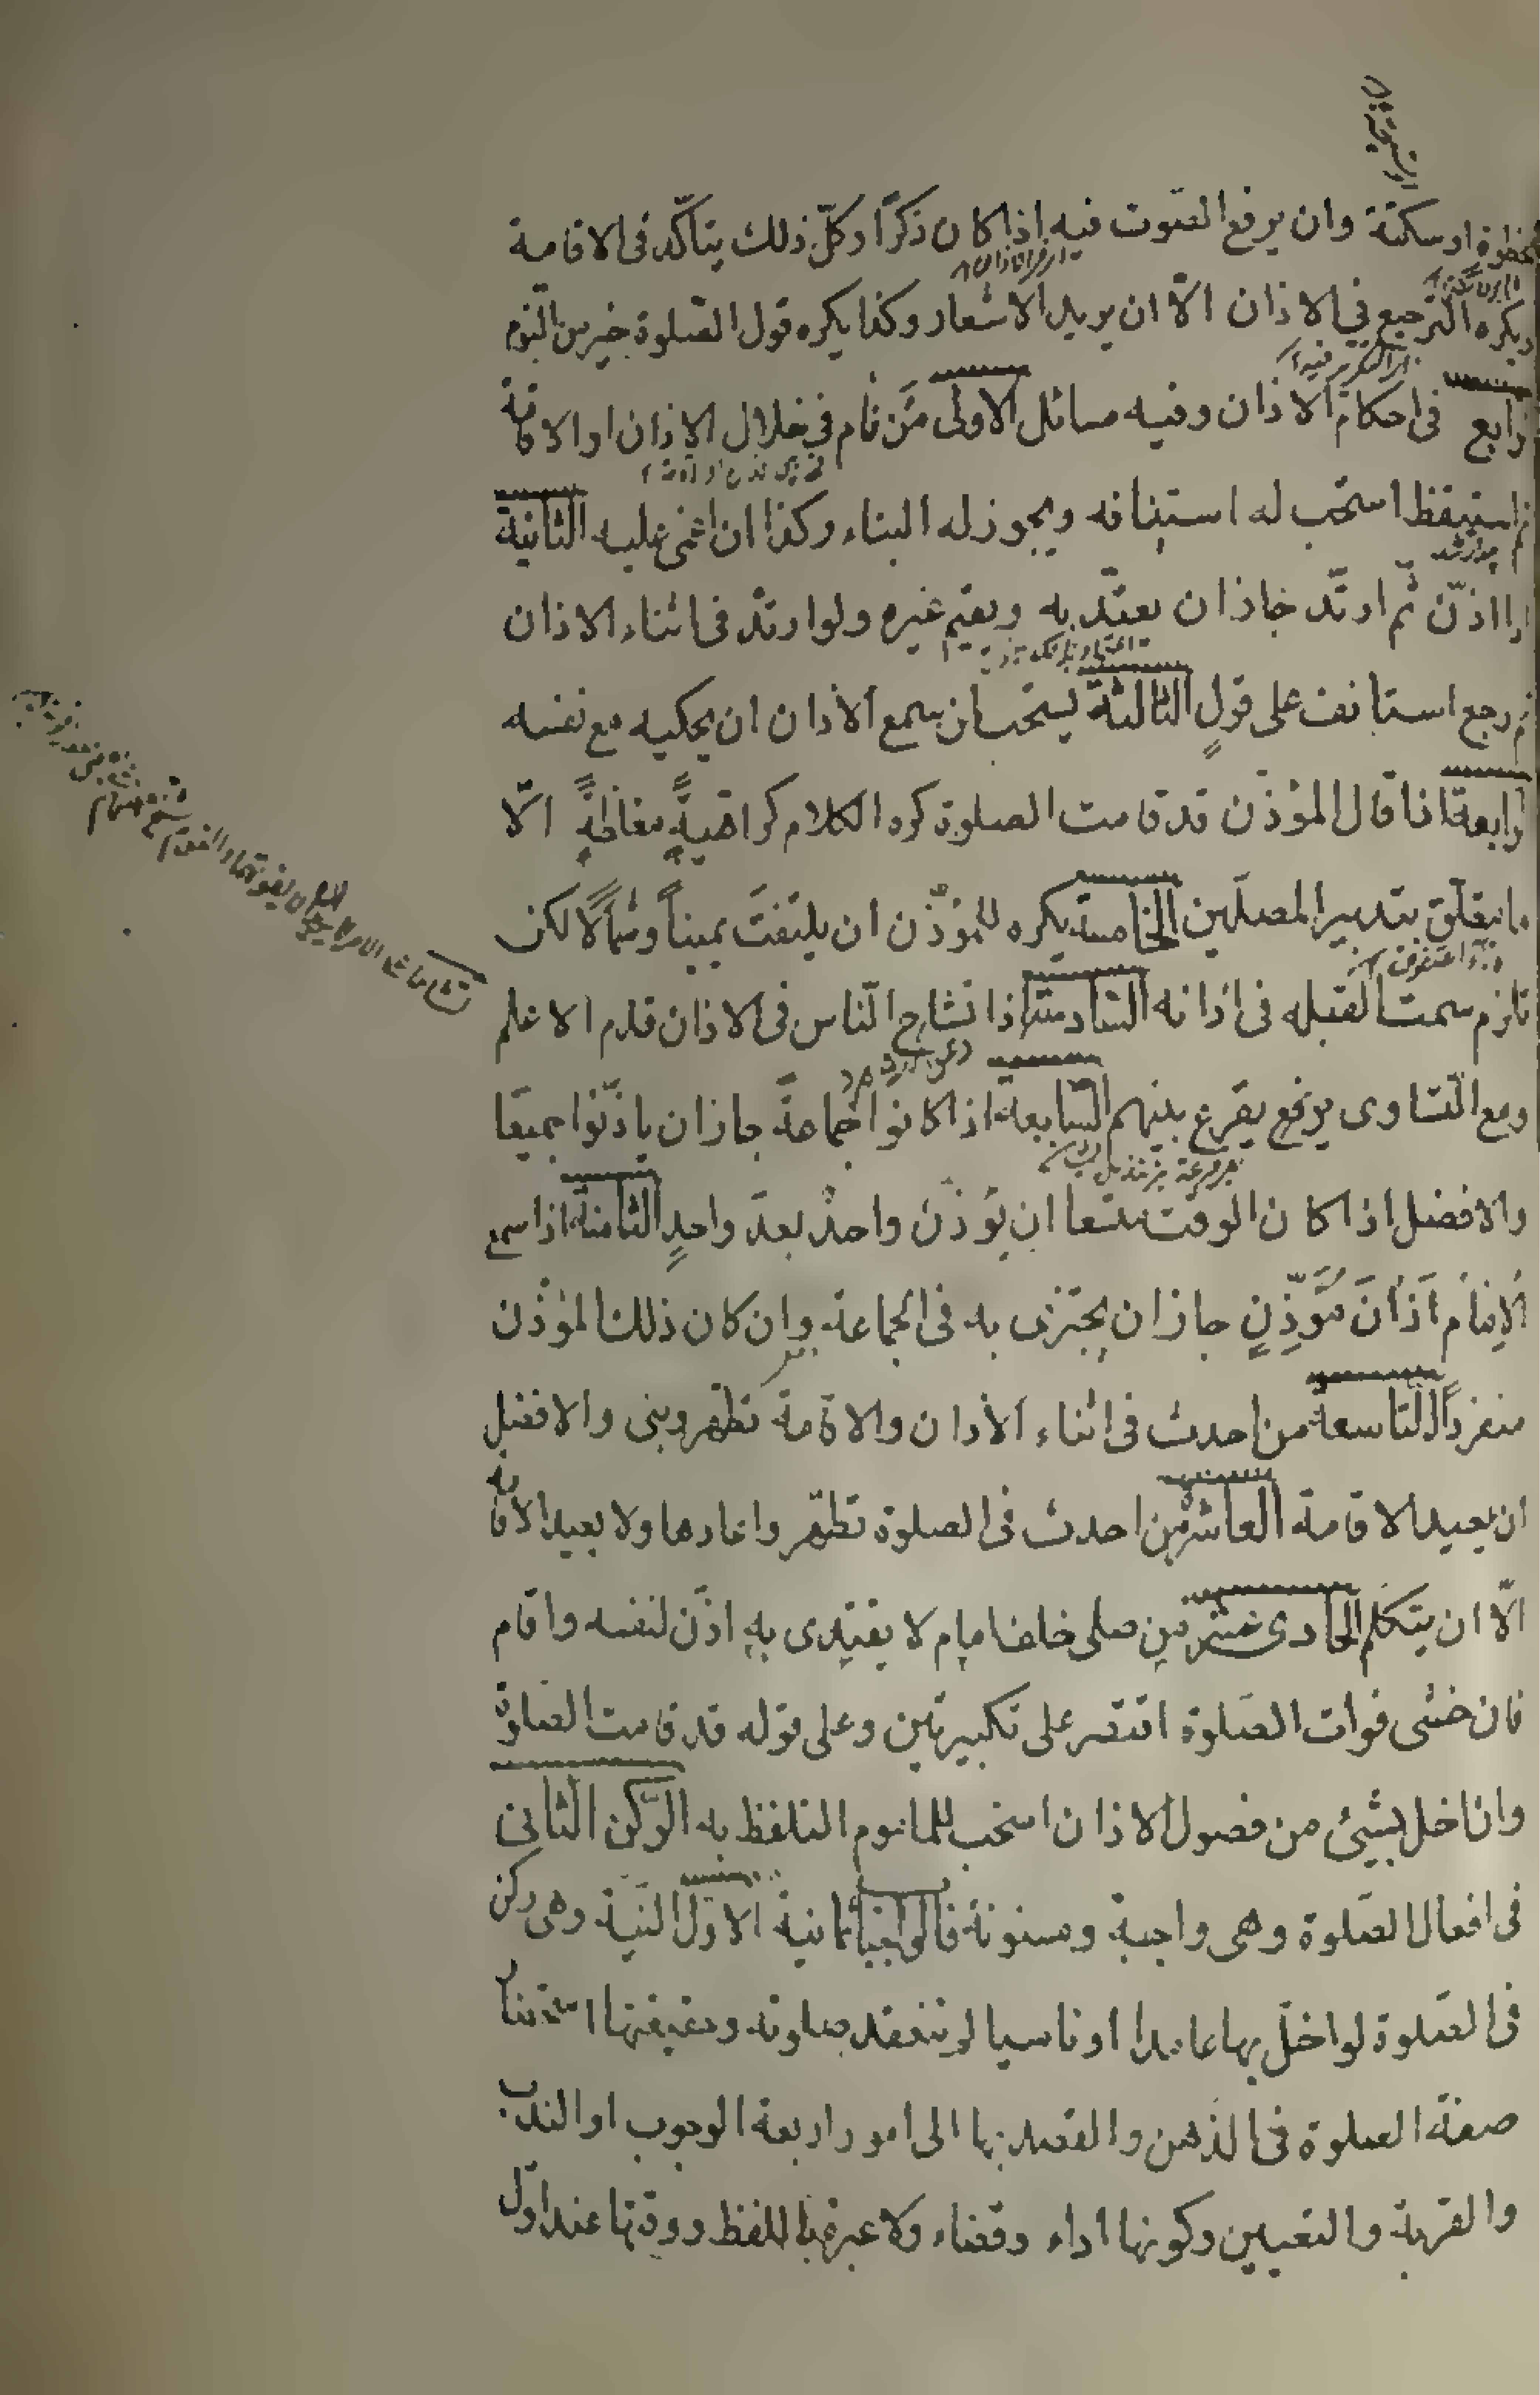 بخطوة او سكتة وان يرفع الصّوت فيه اذا كان ذكرًا وكلّ ذلك يتأكّد فى الاقامة
ويكره الترجيع في الاذان الّا ان يريد الاشعار وكذا يكره قول الصّلوة خير من النّوم
الرابع فى احكام الاذان وفيه مسائل الاولى مَن نام فى خلال الاذان او الاقامة
ثم استيقظ استحب له استينافه ويجوز له البناء وكذا ان اغمى عليه الثانية
اذا اذّن ثم ارتدّ جاز ان يعتدّ به ويقيم غيره ولو ارتدّ فى اثناء الاذان
ثم رجع استانف على قولٍ الثالثة يستحب لمن سمع الأذان ان يحكيه مع نفسه
الرابعة اذا قال المؤذّن قد قامت الصلوة كره الكلام كراهيةً مغلظةً الّا
ما يتعلّق بتدبير المصلّين الخامسة يكره للمؤذّن ان يلتفتَ يميناً وشمالًا لكن
يلزم سمت القبله فى اذانه السّادسة اذا تشاحّ النّاس فى الاذان قدم الاعلم
ومع التّساوى يقرع بينهم السّابعة اذا كانوا جماعةً جاز ان ياذّنوا جميعًا
والافضل اذا كان الوقت متسعا ان يؤذّن واحدٌ بعدَ واحدٍ الثّامنة اذا سمع
الإمام اَذانَ مُؤَذِّنٍ جاز ان يجتزى به فى الجماعة وان كان ذلك المؤذّن
منفرداً التّاسعة من احدث فى اثناء الأذان والاقامة تطهّر وبنى والافضل
ان يعيد الاقامة العاشر من احدث فى الصلوة تطهّر واعادها ولا يعيد الاقامة
الّا ان يتكلم الحادى عشر من صلى خلف امام لا يقتدى به اذّن لنفسه واقام
فان خشى فوات الصّلوة اقتصر على تكبيرتين وعلى قوله قد قامت الصّلوة
وان اخل بشيئ من فصول الاذان استحب للماموم التلفظ به الرّكن الثّانى
فى افعال الصّلوة وهى واجبة ومسنونة فالواجبات ثمانية الاوّل النّية وهى ركن
فى الصّلوة لو اخلّ بها عامدا او ناسيا لم تنعقد صلوته وحقيقتها استحضار
صفة الصلوة فى الذّهن والقصد بها الى امور اربعة الوجوب او الندب
والقربة والتعيين وكونها اداء وقضاء ولا عبرة باللفظ ووقتها عند اوّل